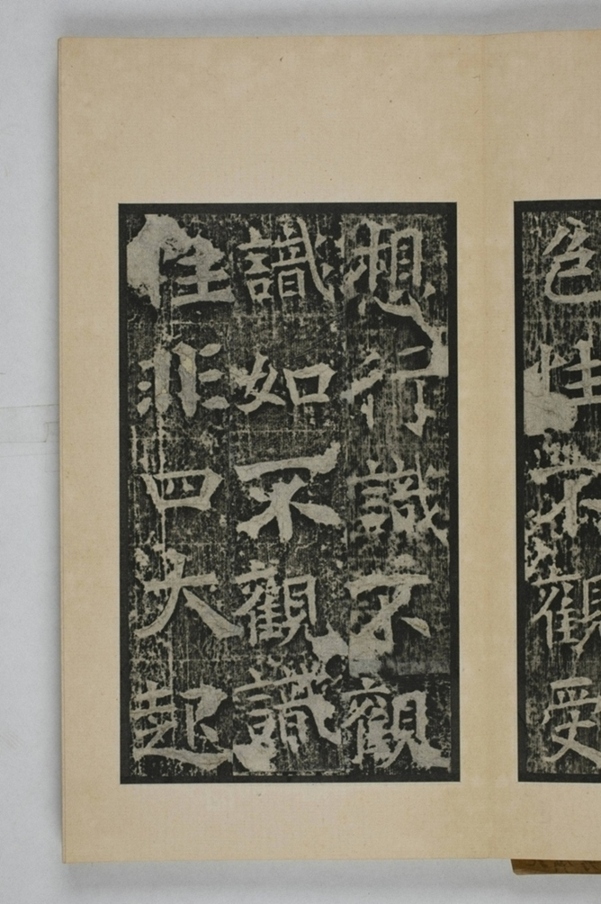 色性不觀受
想行識不觀
識如不觀識
性非四大起